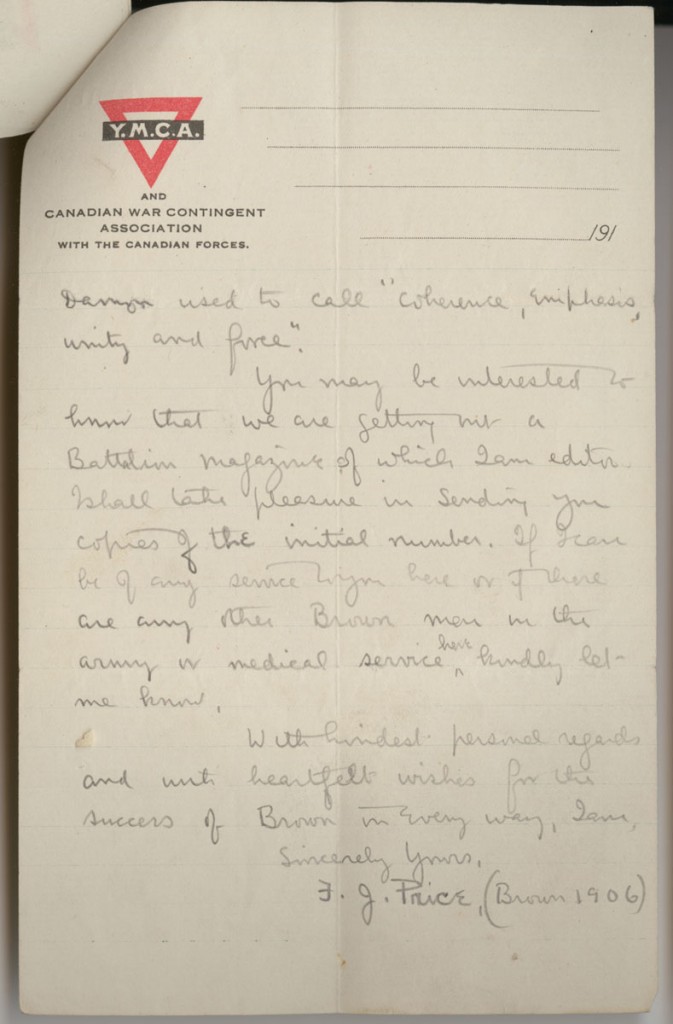 Y.M.C.A.
AND
CANADIAN WAR CONTINGENT
ASSOCIATION
WITH THE CANADIAN FORCES.
191
used to call "Coherence, Emphasis,
unity and force".
You may be interested to
know that we are getting out a
Battalion magazine of which I am editor.
I shall take pleasure in sending you
copies of the initial number. If I can
be of any service to you here or if there
are any other Brown men in the
army or medical service here kindly let
me know.
With kindest personal regards
and with heartfelt wishes for the
success of Brown in every way, I am,
Sincerely Yours,
F. J. Price, (Brown 1906)